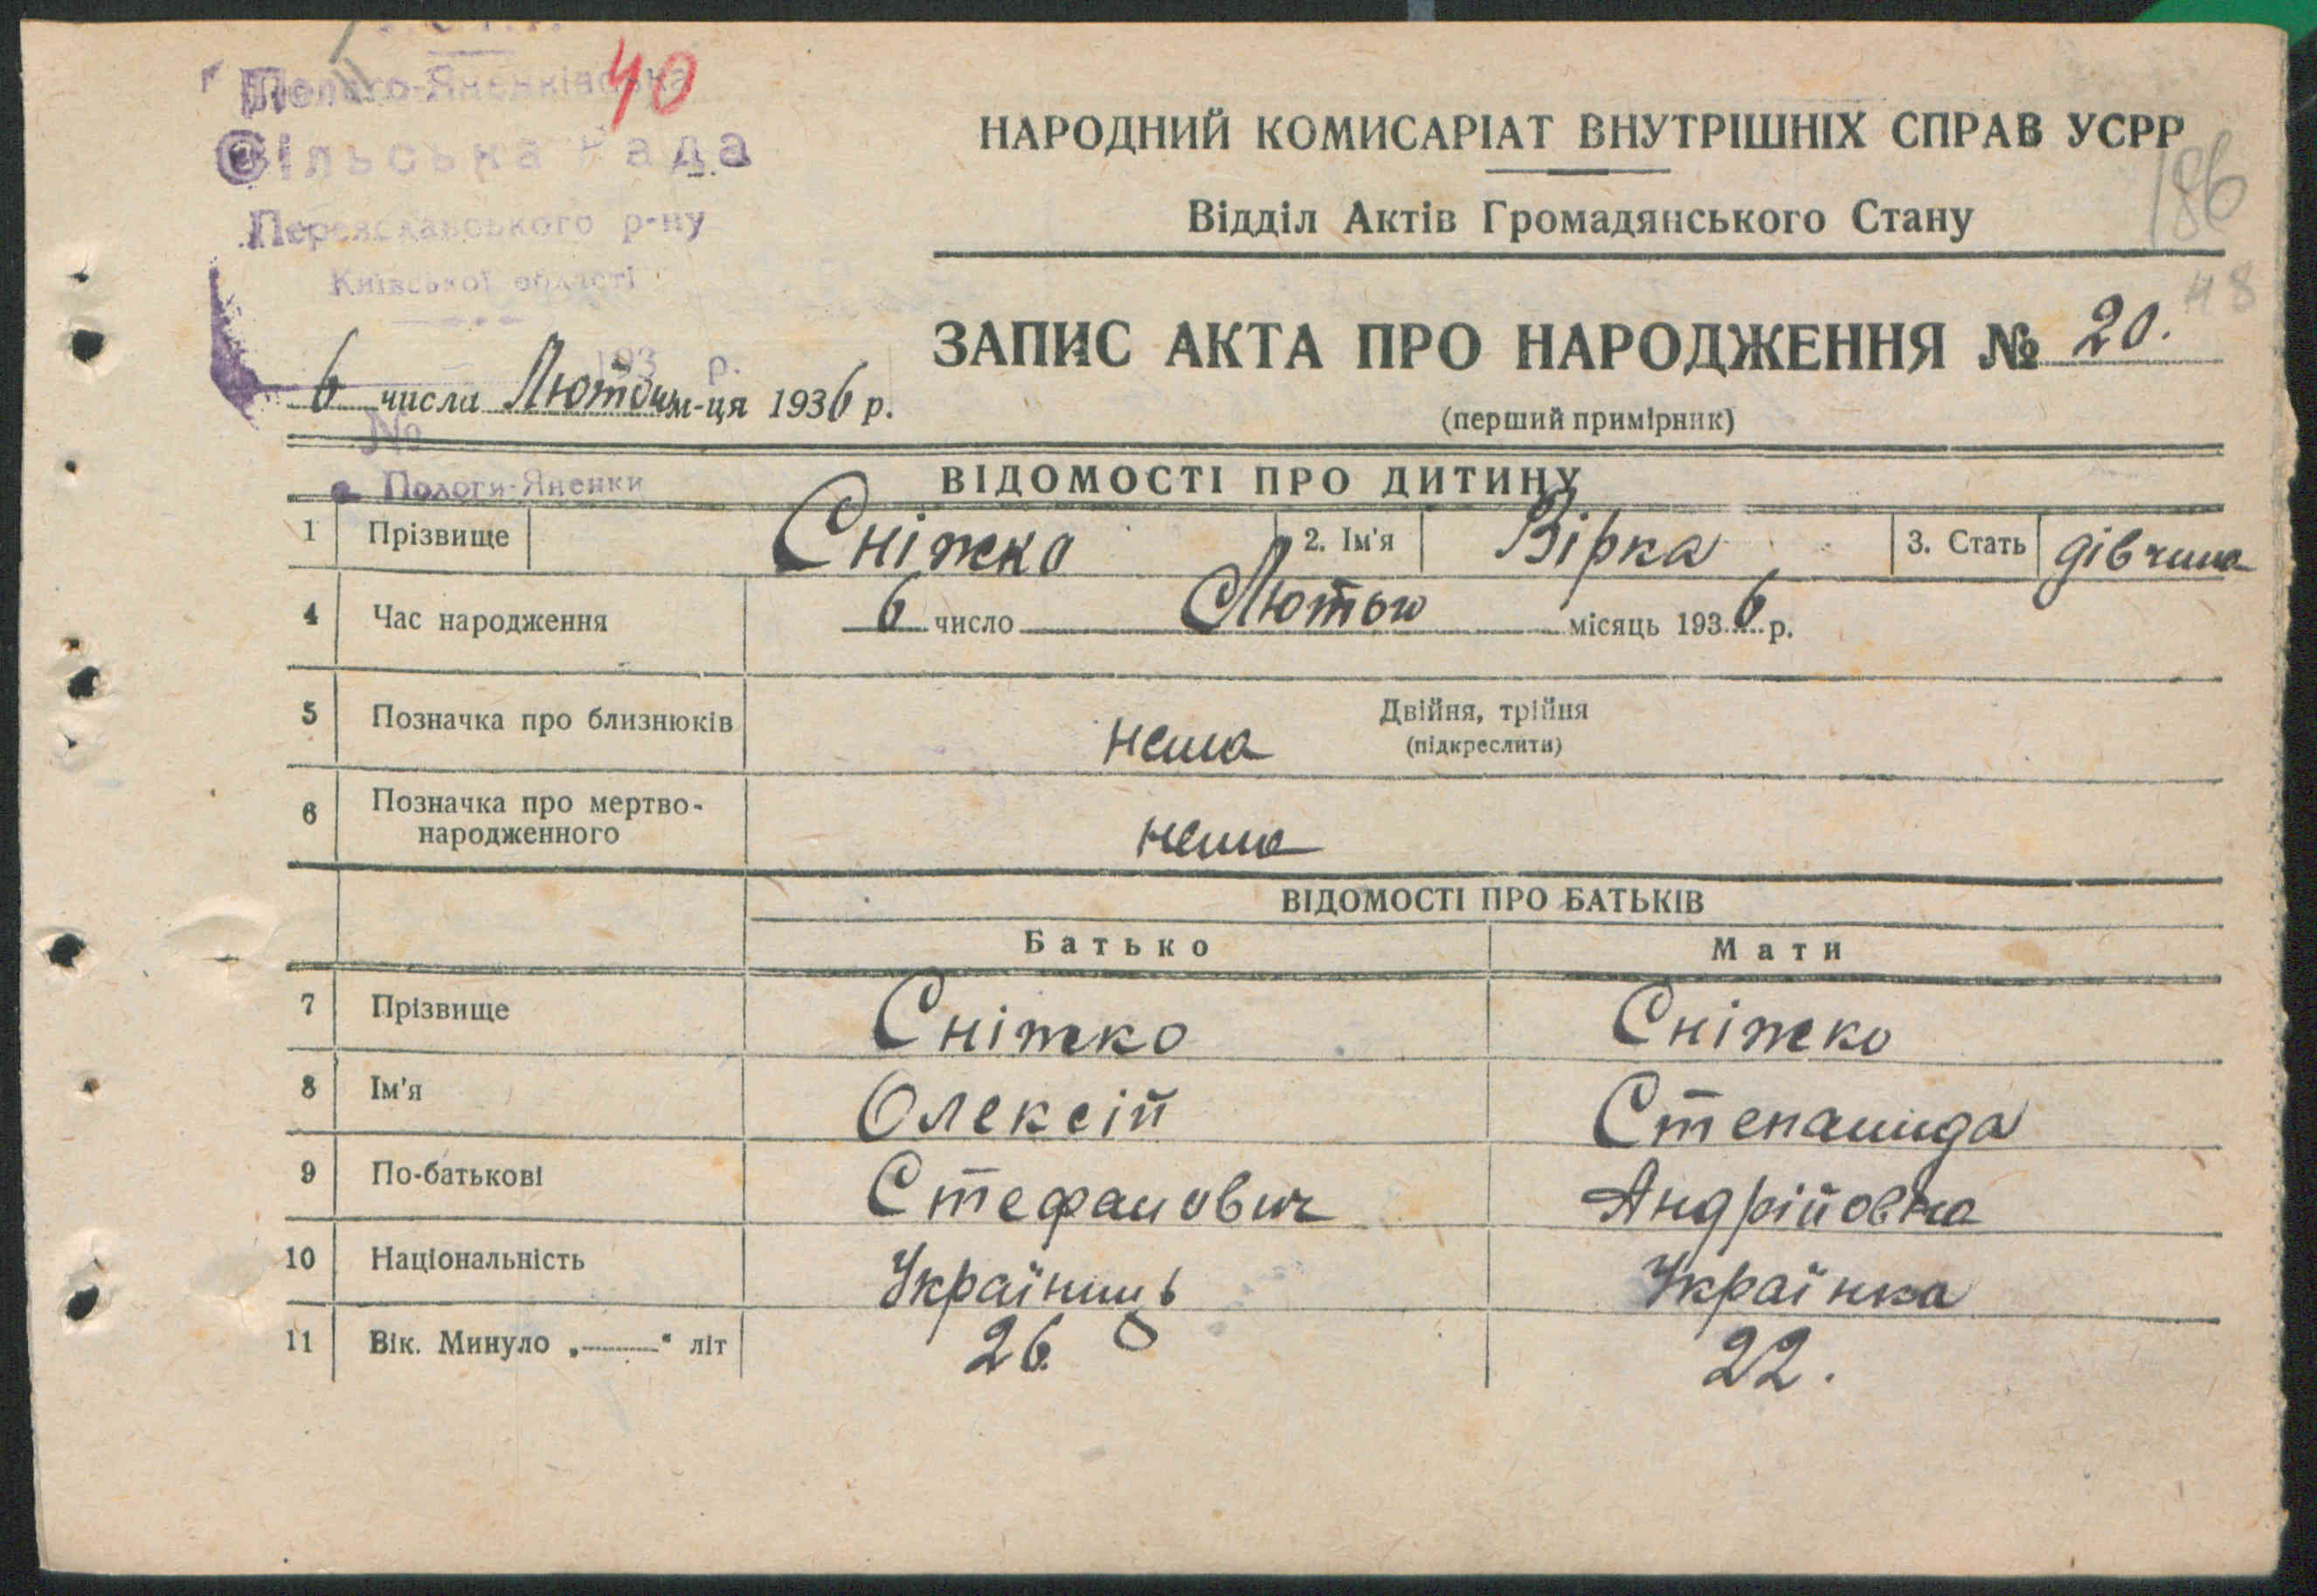 40
Полого-Яненківська
Сільська Рада
Переяславського р-ну
Київської області
193 р.
№
с. Пологи-Яненки
НАРОДНИЙ КОМИСАРІАТ ВНУТРІШНІХ СПРАВ УСРР
186
Відділ Актів Громадянського Стану
48
ЗАПИС АКТА ПРО НАРОДЖЕННЯ № 20.
6 числа м-ця 1936 р.
(перший примірник)
ВІДОМОСТІ ПРО ДИТИНУ
1 Прізвище Сніжко 2. Ім'я Вірка 3. Стать дівчина
4 Час народження 6 число місяць 1936 р.
5 Позначка про близнюків нема Двійня, трійня
(підкреслити)
6 Позначка про мертво-
народженного нема
ВІДОМОСТІ ПРО БАТЬКІВ
Батько Мати
7 Прізвище Сніжко Сніжко
8 Ім'я Олексій Степанида
9 По-батькові Стефанович Андрійовна
10 Національність Українець Українка
11 Вік. Минуло „———" літ 26 22.